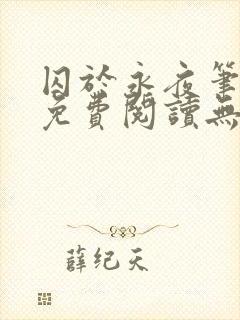 囚於永夜筆
免費閱讀無
薛纪天